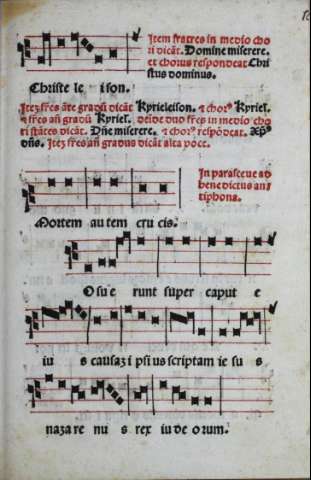 Item fratres in medio cho
ri dicãt. Domine miserere.
et chorus respondeat Chri
stus dominus.
Christe le i son.
Itez fr̃es ãte gradũ dicãt Kyrieleison. ⁊ chorꝰ Kyriel.
⁊ fr̃es añ gradũ Kyriel. deĩde duo fr̃es in medio cho
ri stãtes dicãt. Dñe miserere. ⁊ chorꝰ respõdeat. xp̃s
dñs. Itez fr̃es añ gradus dicãt alta voce.
In parasceue ad
benedictus an
tiphona.
Mortem au tem cru cis.
O su e runt super caput e
iu s causaz i psi us scriptam ie su s
naza re nu s rex iu de o rum.